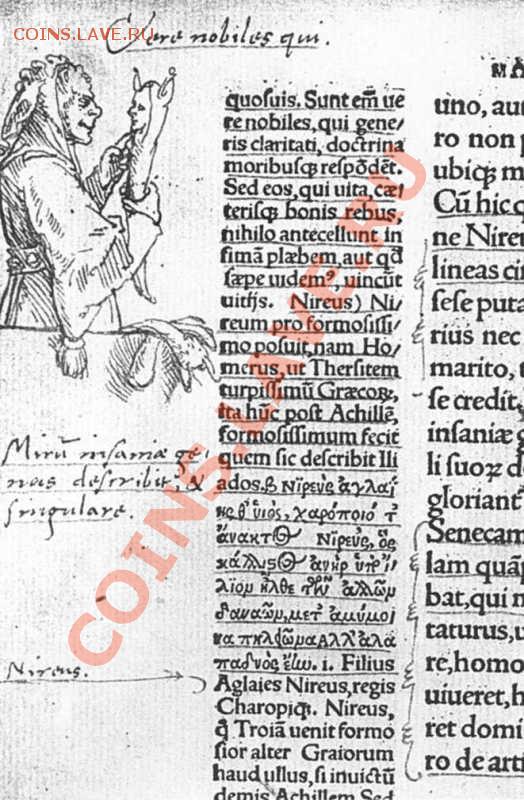 COINS.LAVE.RU
Vere nobiles qui.
quosuis. Sunt em̄ ue
re nobiles, qui gene/
ris claritati, doctrina
moribusq; respōdēt.
Sed eos, qui uita, cæ/
terisq; bonis rebus,
nihilo antecellunt in
fimā plæbem, aut qđ
sæpe uidemꝰ, uincūt
uitijs. Nireus) Ni/
reum pro formosissi/
mo posuit, nam Ho/
merus, ut Thersitem
turpissimū Græcoꝝ,
ita hūc post Achillē,
formosissimum fecit
quem sic describit Ili
ados. β. Νιρεὺς ἀγλαΐ
ης θ' υἱὸς, χαρόποιό τ'
ἄνακτος Νιρεὺς, ὃς
κάλλιστος ἀνὴρ ὑπ' ἴ/
λιον ἦλθε τῶν ἄλλων
δαναῶν, μετ' ἀμύμοι
να πηλείωνα Αλλ' ἀλα
παδνὸς ἔην. i. Filius
Aglaies Nireus, regis
Charopiq;. Nireus,
q̄ Troiā uenit formo
sior alter Graiorum
haud ullus, si inuictū
demis Achillem Sed
Mirū insaniæ ge/
nus describit, &
singulare.
Nireus.
MA
uno, au
ro non p
ubiq; m
Cū hic
ne Niren
lineas ci
sese puta
rius nec
marito, t
se credit,
insaniæ g
li suoꝝ d
gloriant
Senecam
lam quāp
bat, qui n
taturus, u
re, homo
uiueret, h
ret domi
ro de arti
COINS.LAVE.RU